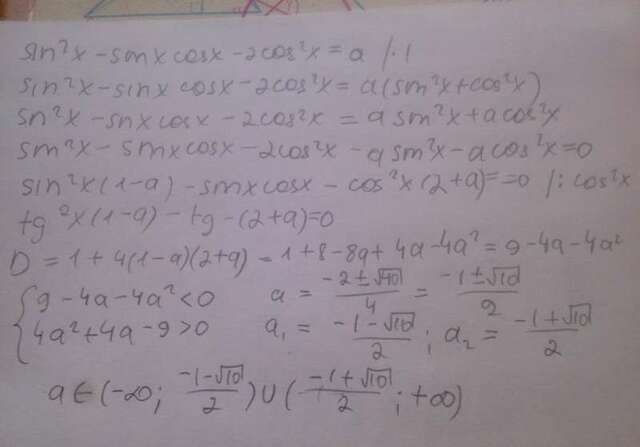 sin²x - sinx cosx - 2cos²x = a /·1
sin²x - sinx cosx - 2cos²x = a(sin²x + cos²x)
sin²x - sinx cosx - 2cos²x = a sin²x + a cos²x
sin²x - sinx cosx - 2cos²x - a sin²x - a cos²x = 0
sin²x(1-a) - sinx cosx - cos²x(2+a) = =0 /: cos²x
tg²x(1-a) - tg - (2+a)=0
D = 1 + 4(1-a)(2+a) = 1+8-8a+4a-4a² = 9-4a-4a²
{ 9-4a-4a² < 0 a = (-2±√40)/4 = (-1±√10)/2
4a²+4a-9 > 0 a₁ = (-1-√10)/2 ; a₂ = (-1+√10)/2
a ∈ (-∞; (-1-√10)/2) ∪ ((-1+√10)/2 ; +∞)